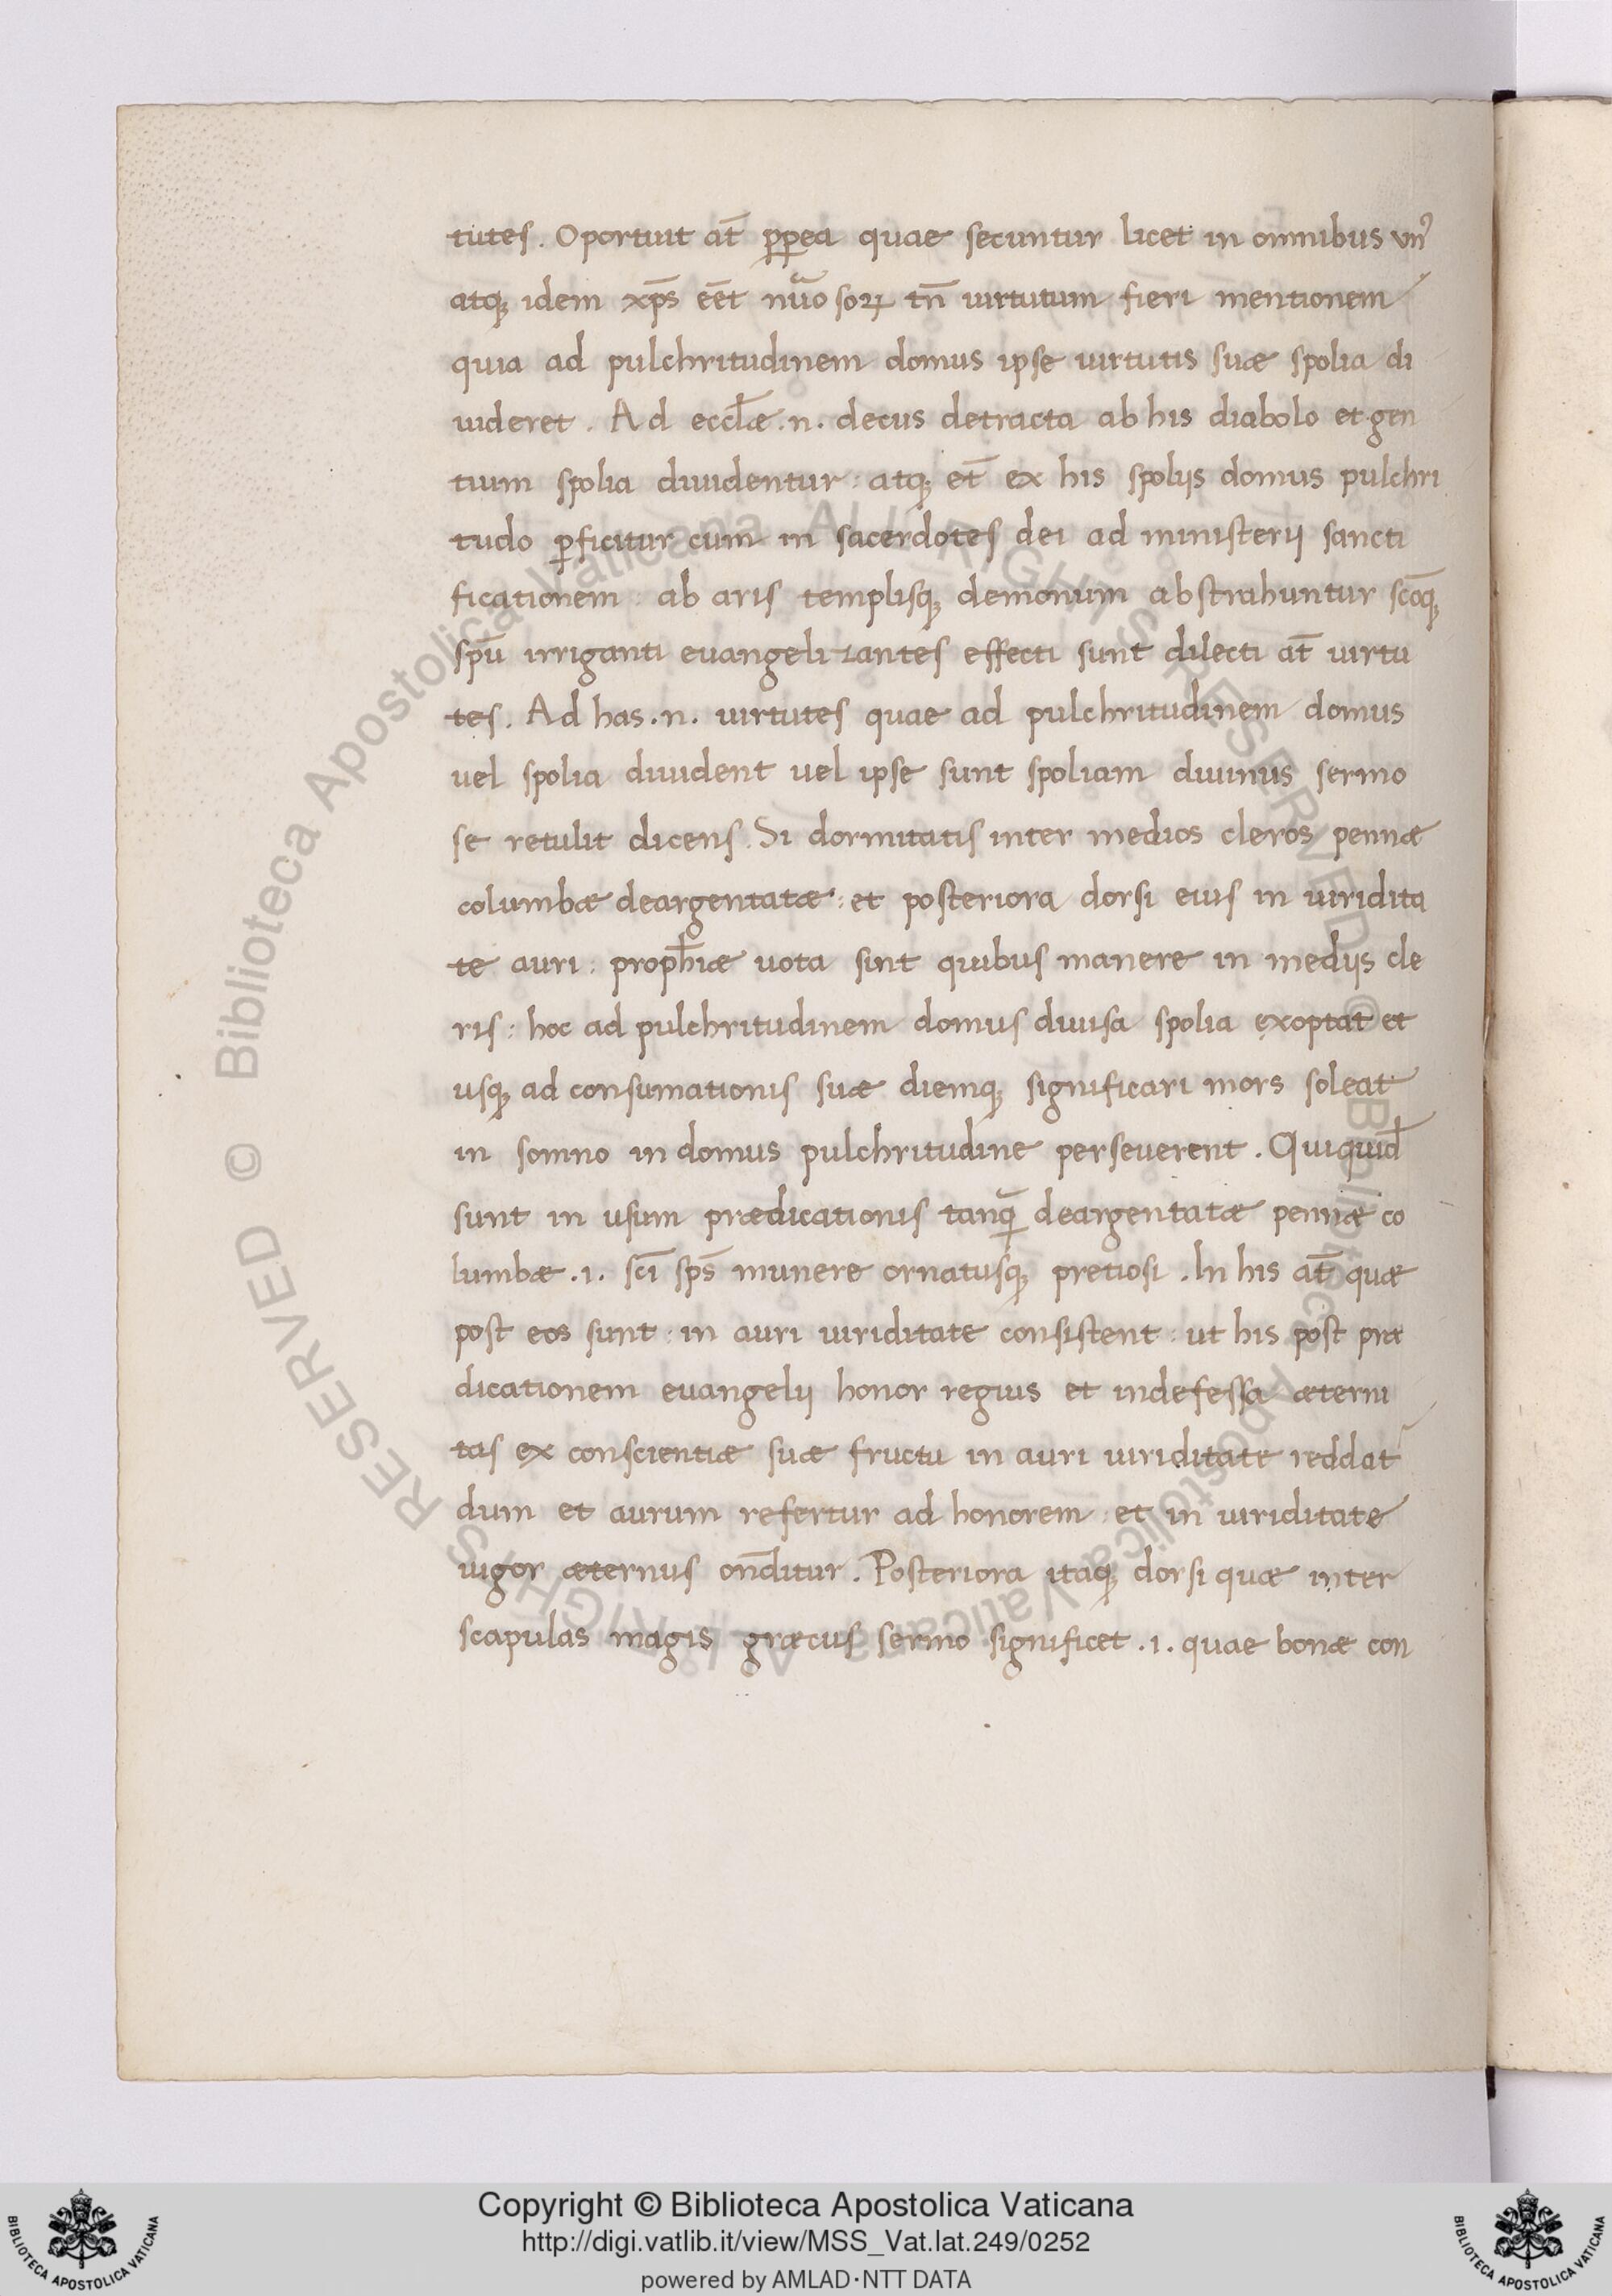 tutes. Oportuit at̄ ꝓpea quae secuntur licet in omnibus vn⁹
atq; idem xp̄s eēt nūo soꝝ tn̄ uirtutum fieri mentionem
quia ad pulchritudinem domus ipse uirtutis suæ spolia di
uideret. Ad eccl̄æ .n. decus detracta ab his diabolo et gen
tium spolia diuidentur: atq; et̄ ex his spolijs domus pulchri
tudo ꝑficitur cum in sacerdotes dei ad ministerij sancti
ficationem: ab aris templisq; demonum abstrahuntur scōq;
spū irriganti euangelizantes effecti sunt dilecti at̄ uirtu
tes. Ad has .n. uirtutes quae ad pulchritudinem domus
uel spolia diuident uel ipse sunt spoliam diuinus sermo
se retulit dicens. Si dormitatis inter medios cleros pennæ
columbæ deargentatæ: et posteriora dorsi eius in uiridita
te auri: proph̄iæ uota sint quibus manere in medijs cle
ris: hoc ad pulchritudinem domus diuisa spolia exoptat et
usq; ad consumationis suæ diemq; significari mors soleat
in somno in domus pulchritudine perseuerent. Quiquid
sunt in usum prædicationis tanq̄ deargentatæ pennæ co
lumbæ .i. sc̄i sp̄s munere ornatusq; pretiosi. In his at̄ quæ
post eos sunt: in auri uiriditate consistent: ut his post præ
dicationem euangelij honor regius et indefessa æterni
tas ex conscientiæ suæ fructu in auri uiriditate reddat
dum et aurum refertur ad honorem: et in uiriditate
uigor æternus on̄ditur. Posteriora itaq; dorsi quæ inter
scapulas magis græcus sermo significet .i. quae bonæ con
Biblioteca Apostolica Vaticana ALL RIGHTS RESERVED © Biblioteca Apostolica Vaticana ALL RIGHTS RESERVED ©
Copyright © Biblioteca Apostolica Vaticana
http://digi.vatlib.it/view/MSS_Vat.lat.249/0252
powered by AMLAD·NTT DATA
BIBLIOTECA APOSTOLICA VATICANA
BIBLIOTECA APOSTOLICA VATICANA